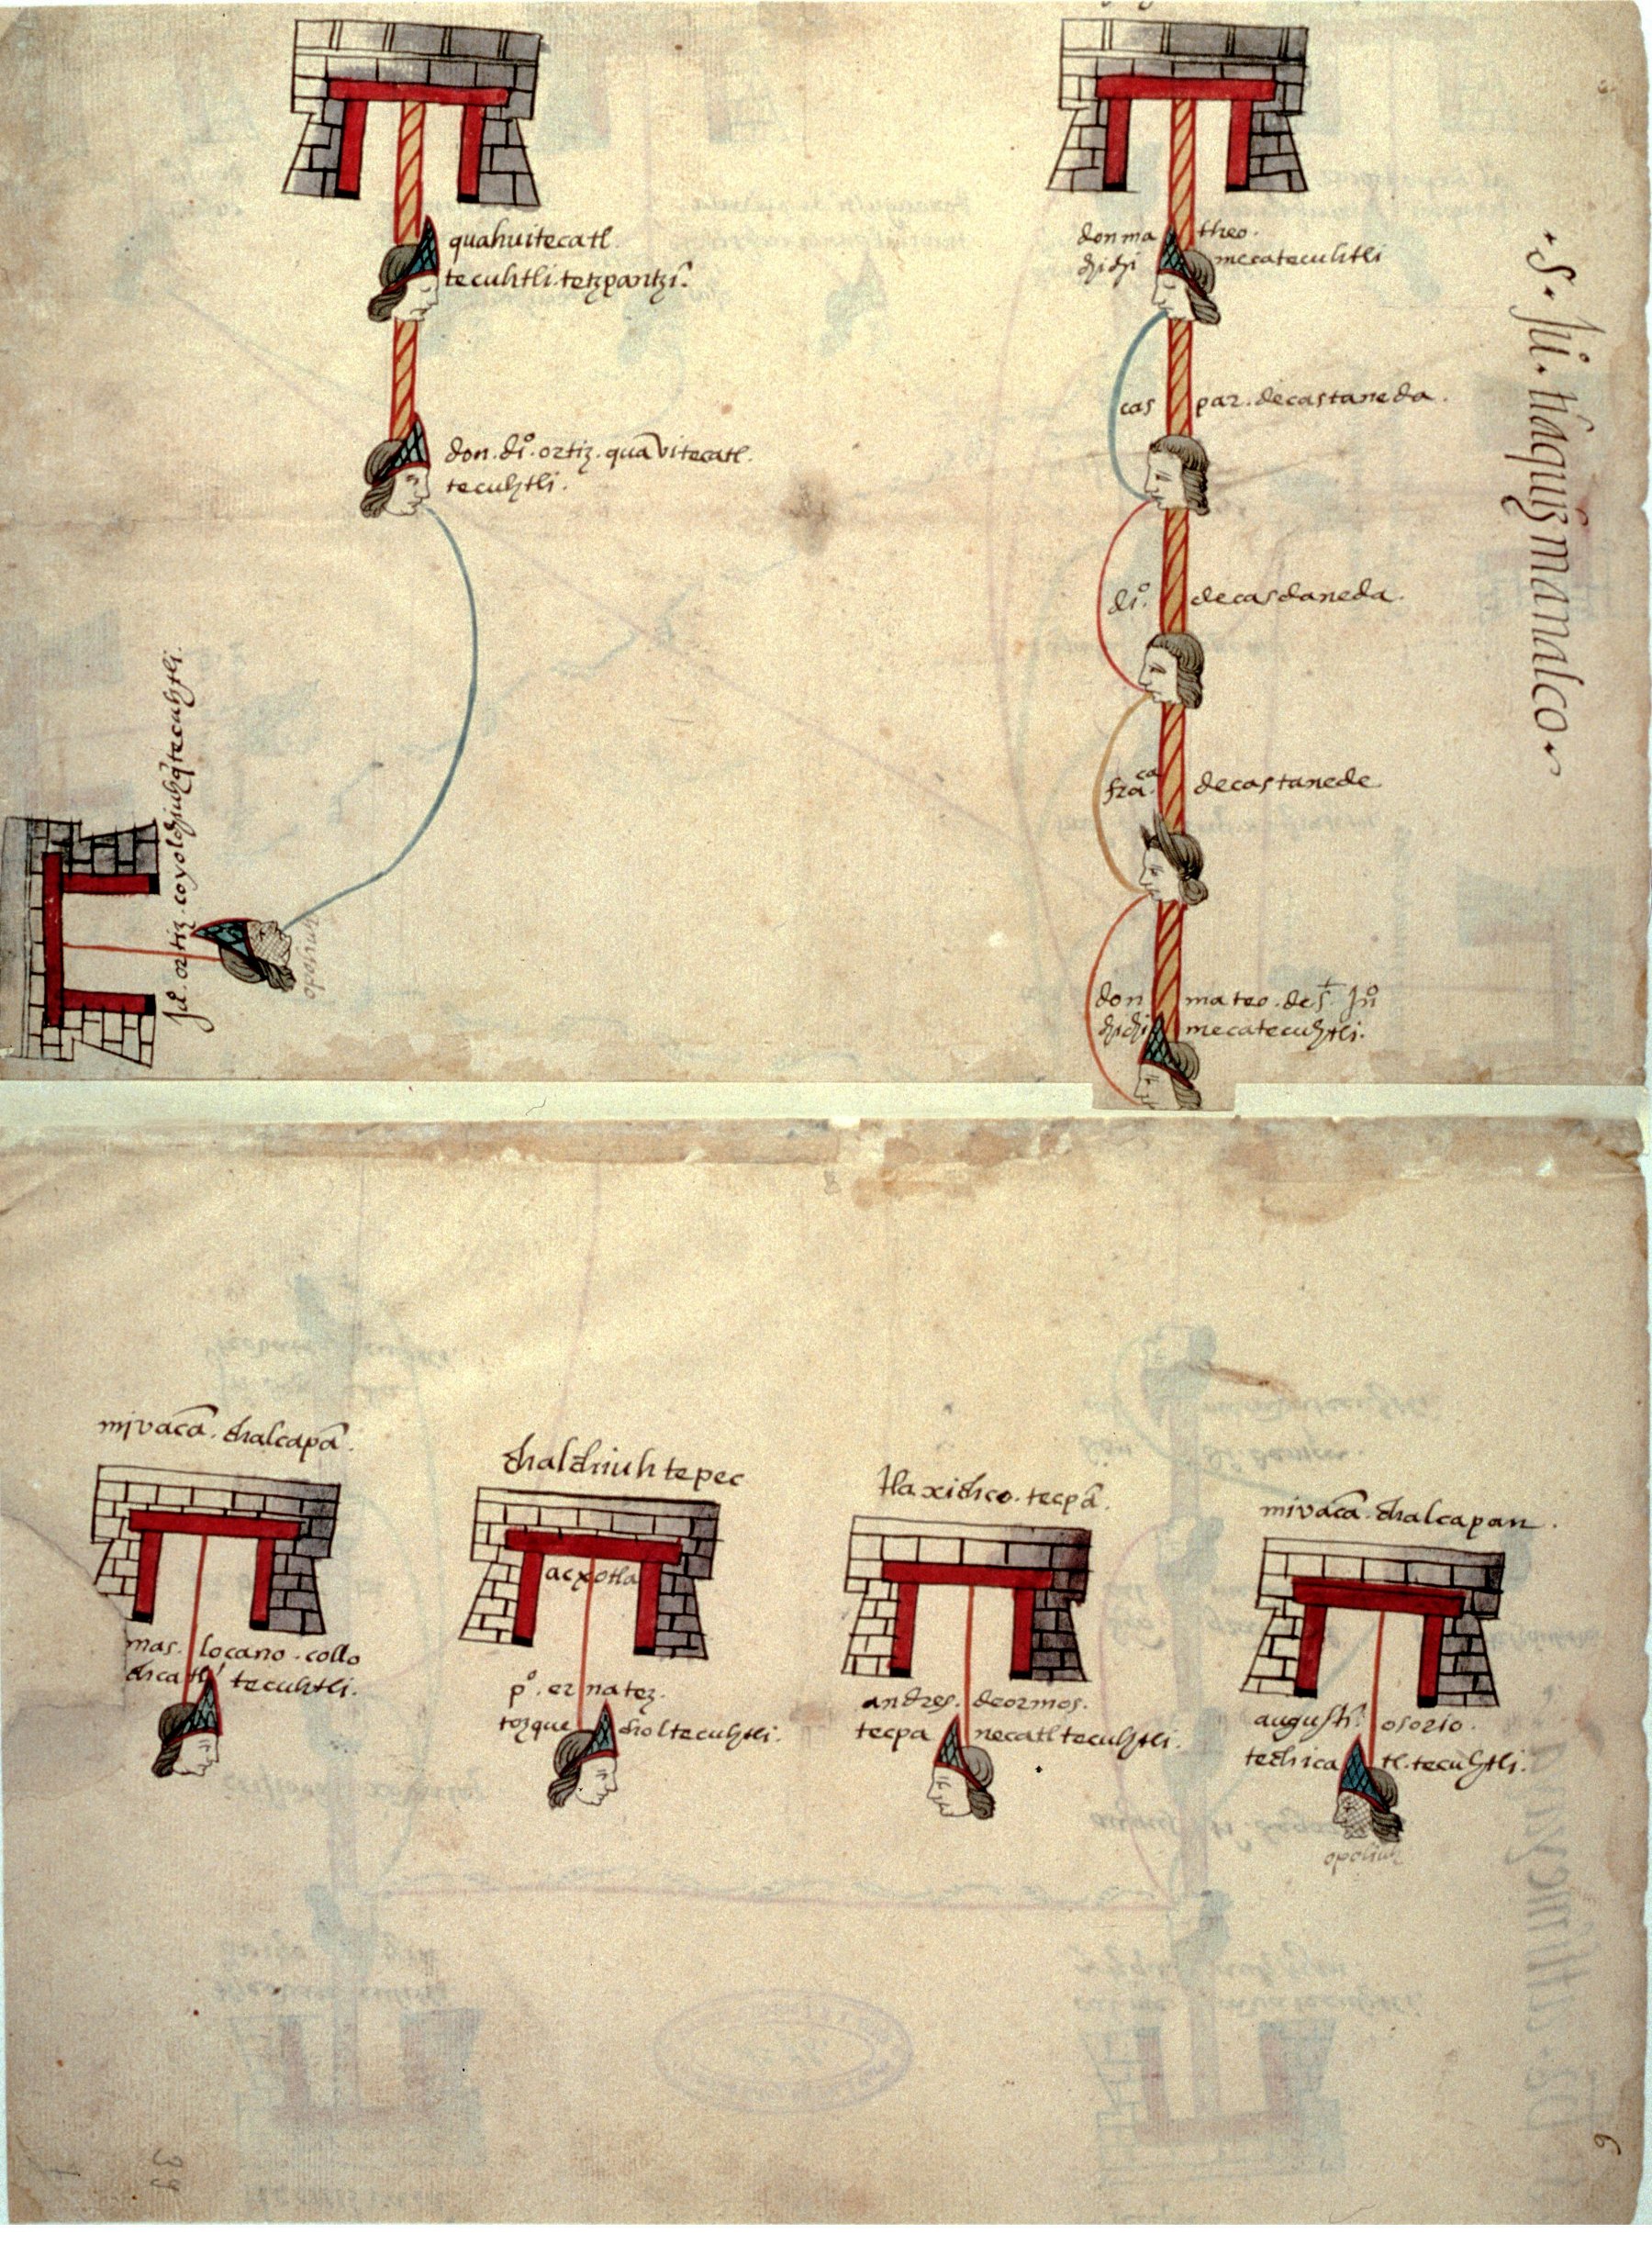 quahuitecatl.
tecuhtli.tetzpantzi̅.
don.di°.ortiz.qua̅vitecatl.
tecuhtli.
ju°. ortiz.coyolchiuhq̅tecuhtli.
opoliuh
don ma theo.
chichi mecatecuhtli
cas par.decastaneda.
di°. decasdaneda.
fra̅ca decastanede
don mateo.de s.t Ju°
chichi mecatecuhtli.
.S. Jui. tlaquizmanalco.
mivaca̅.chalcapa̅.
mas. locano.collo
chicatl tecuhtli.
chalchiuhtepec
acxotla
p°. ernatez.
tozque choltecuhtli.
tlaxichco.tecpa̅.
andres. deormos.
tecpa necatl tecuhtli.
mivaca̅.chalcapan.
augusti̅. osorio.
techica tl.tecuhtli.
opoliuh
39
6